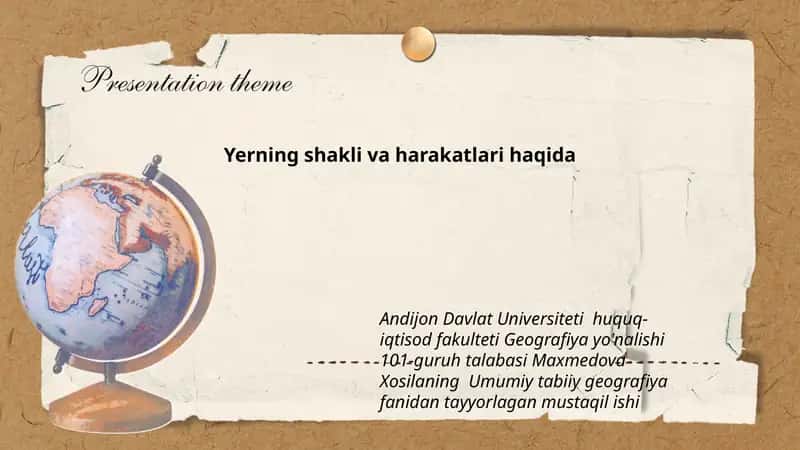 Presentation theme
Yerning shakli va harakatlari haqida
Andijon Davlat Universiteti huquq-
iqtisod fakulteti Geografiya yo'nalishi
101-guruh talabasi Maxmedova
Xosilaning Umumiy tabiiy geografiya
fanidan tayyorlagan mustaqil ishi